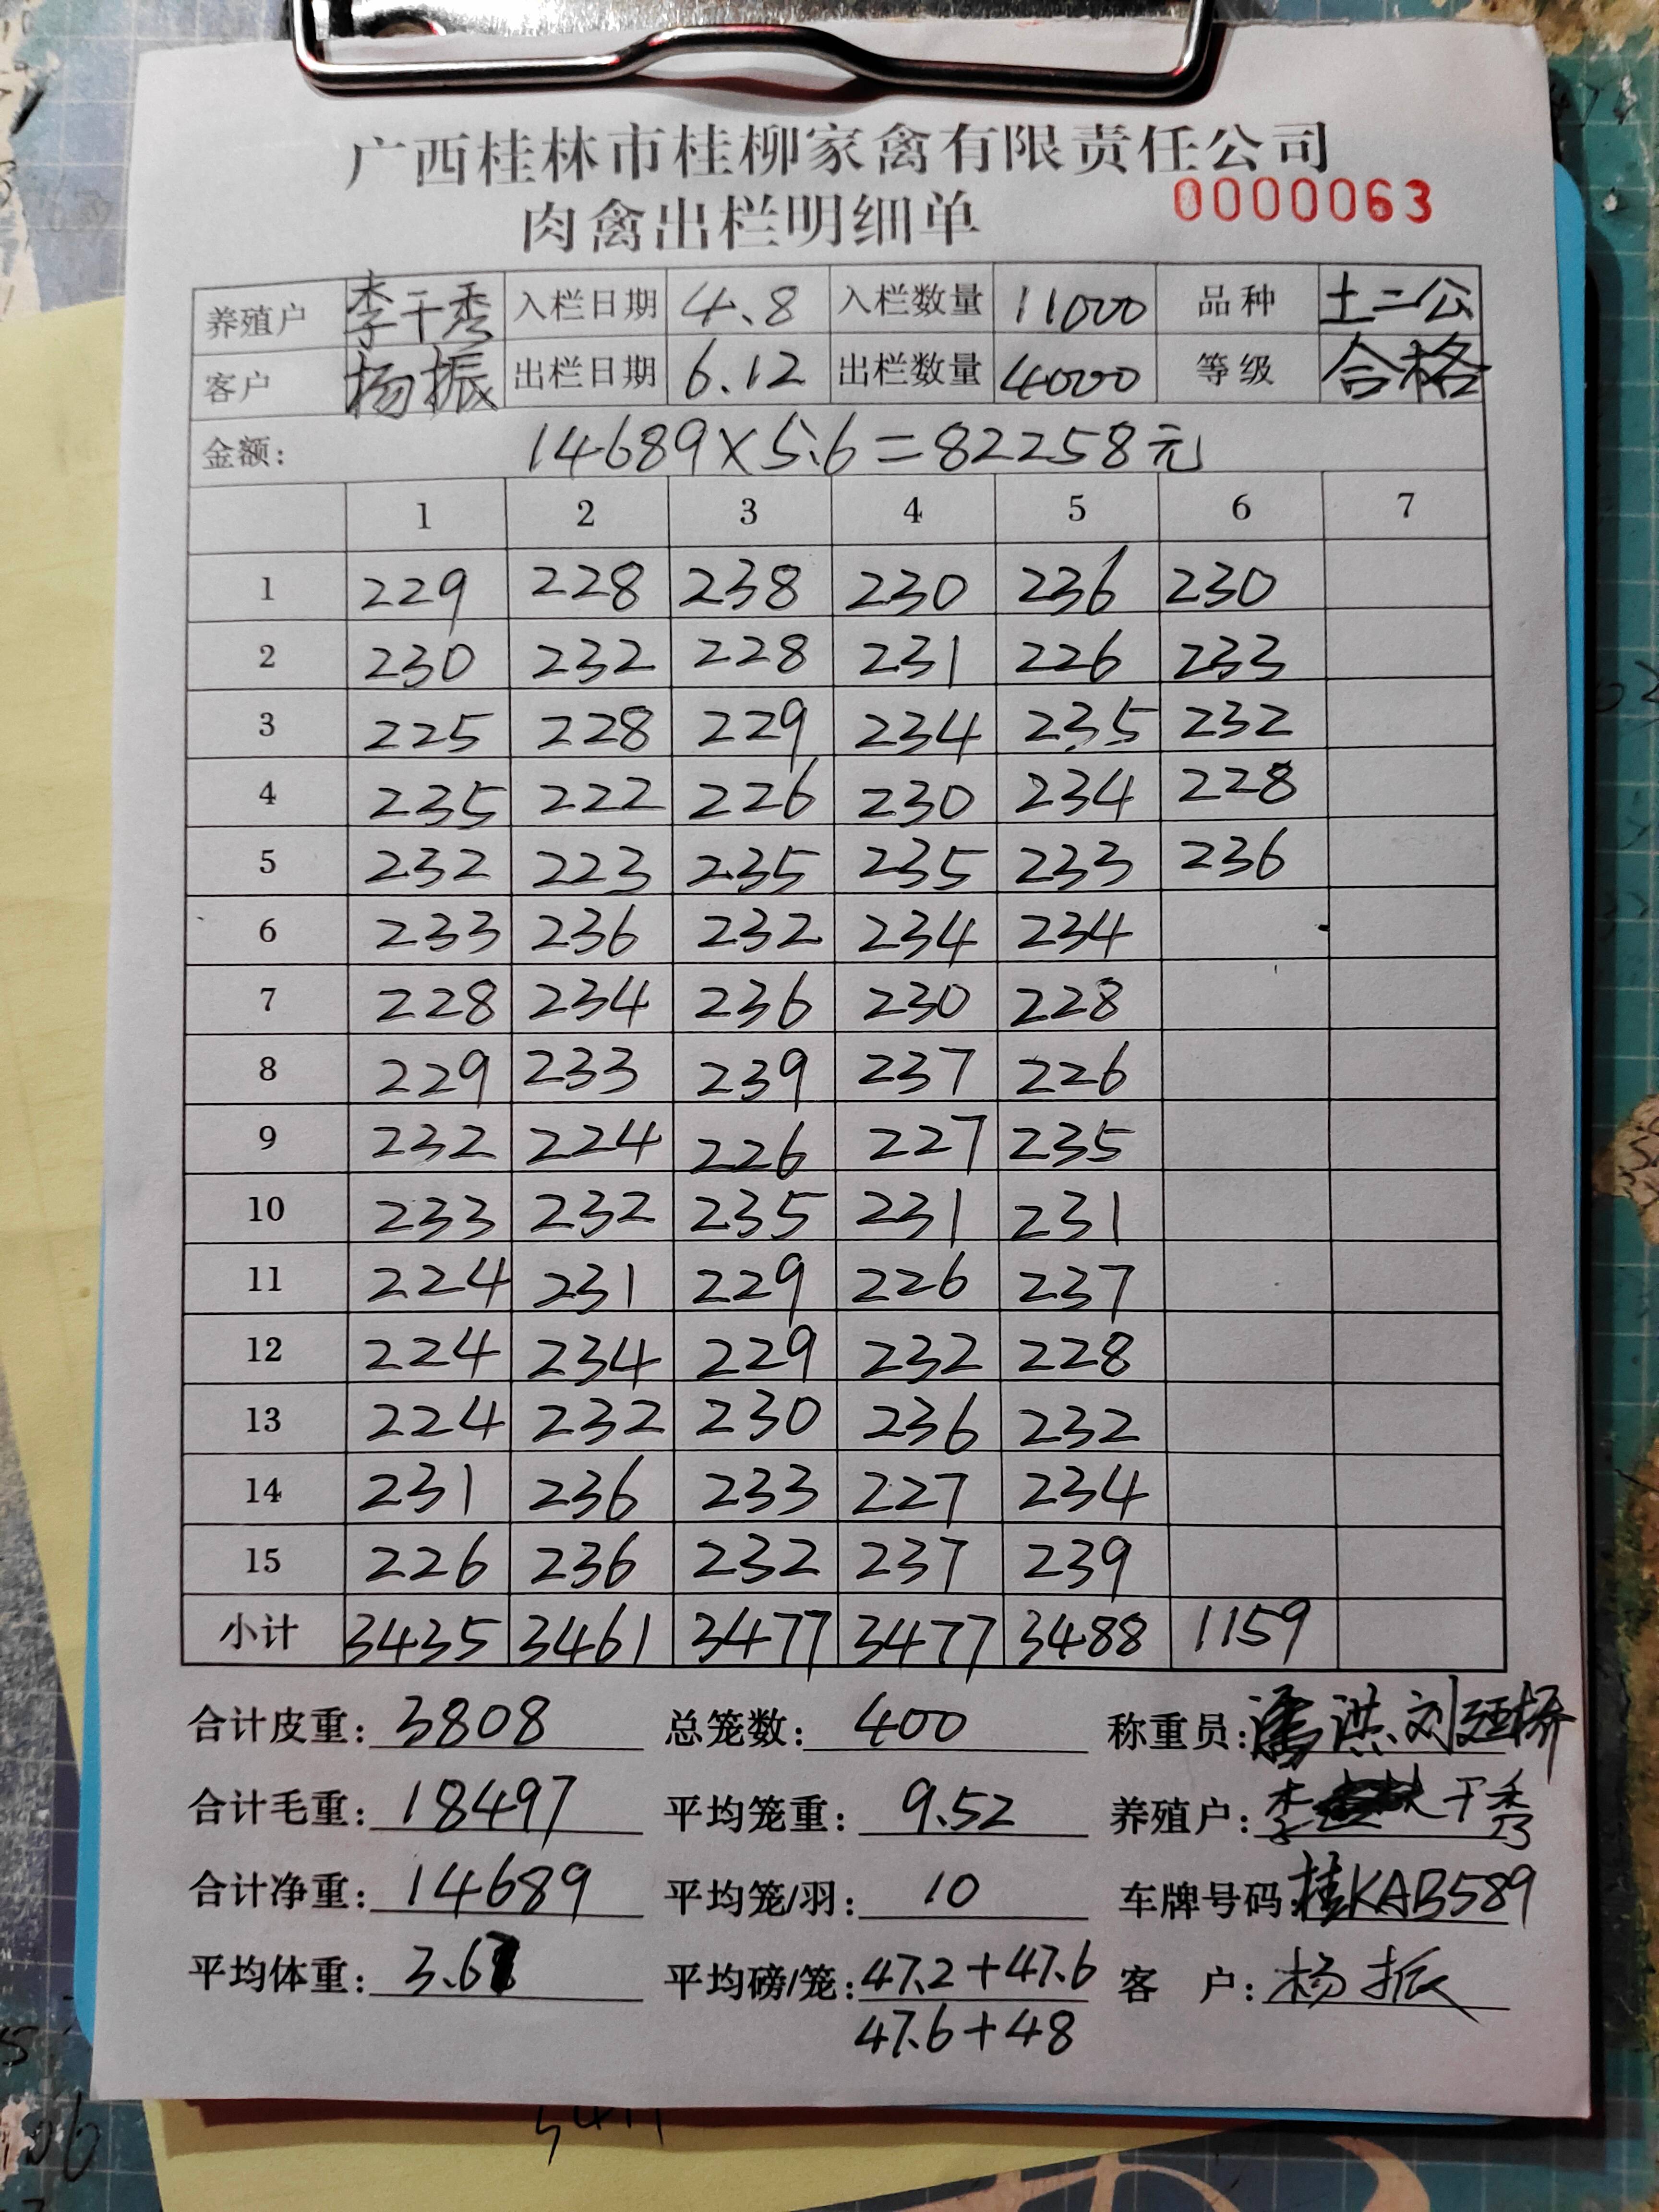 广西桂林市桂柳家禽有限责任公司
肉禽出栏明细单 0000063
养殖户 李干秀 入栏日期 4.8 入栏数量 11000 品种 土二公
客户 杨振 出栏日期 6.12 出栏数量 4000 等级 合格
金额: 14689×5.6=82258元
1 2 3 4 5 6 7
1 229 228 238 230 236 230
2 230 232 228 231 226 233
3 225 228 229 234 235 232
4 235 222 226 230 234 228
5 232 223 235 235 233 236
6 233 236 232 234 234
7 228 234 236 230 228
8 229 233 239 237 226
9 232 224 226 227 235
10 233 232 235 231 231
11 224 231 229 226 237
12 224 234 229 232 228
13 224 232 230 236 232
14 231 236 233 227 234
15 226 236 232 237 239
小计 3435 3461 3477 3477 3488 1159
合计皮重: 3808 总笼数: 400 称重员: 洪 刘
合计毛重: 18497 平均笼重: 9.52 养殖户: 李干秀
合计净重: 14689 平均笼/羽: 10 车牌号码: 桂KAB589
平均体重: 3.67 平均磅/笼: 47.2+47.6 客 户: 杨振
47.6+48